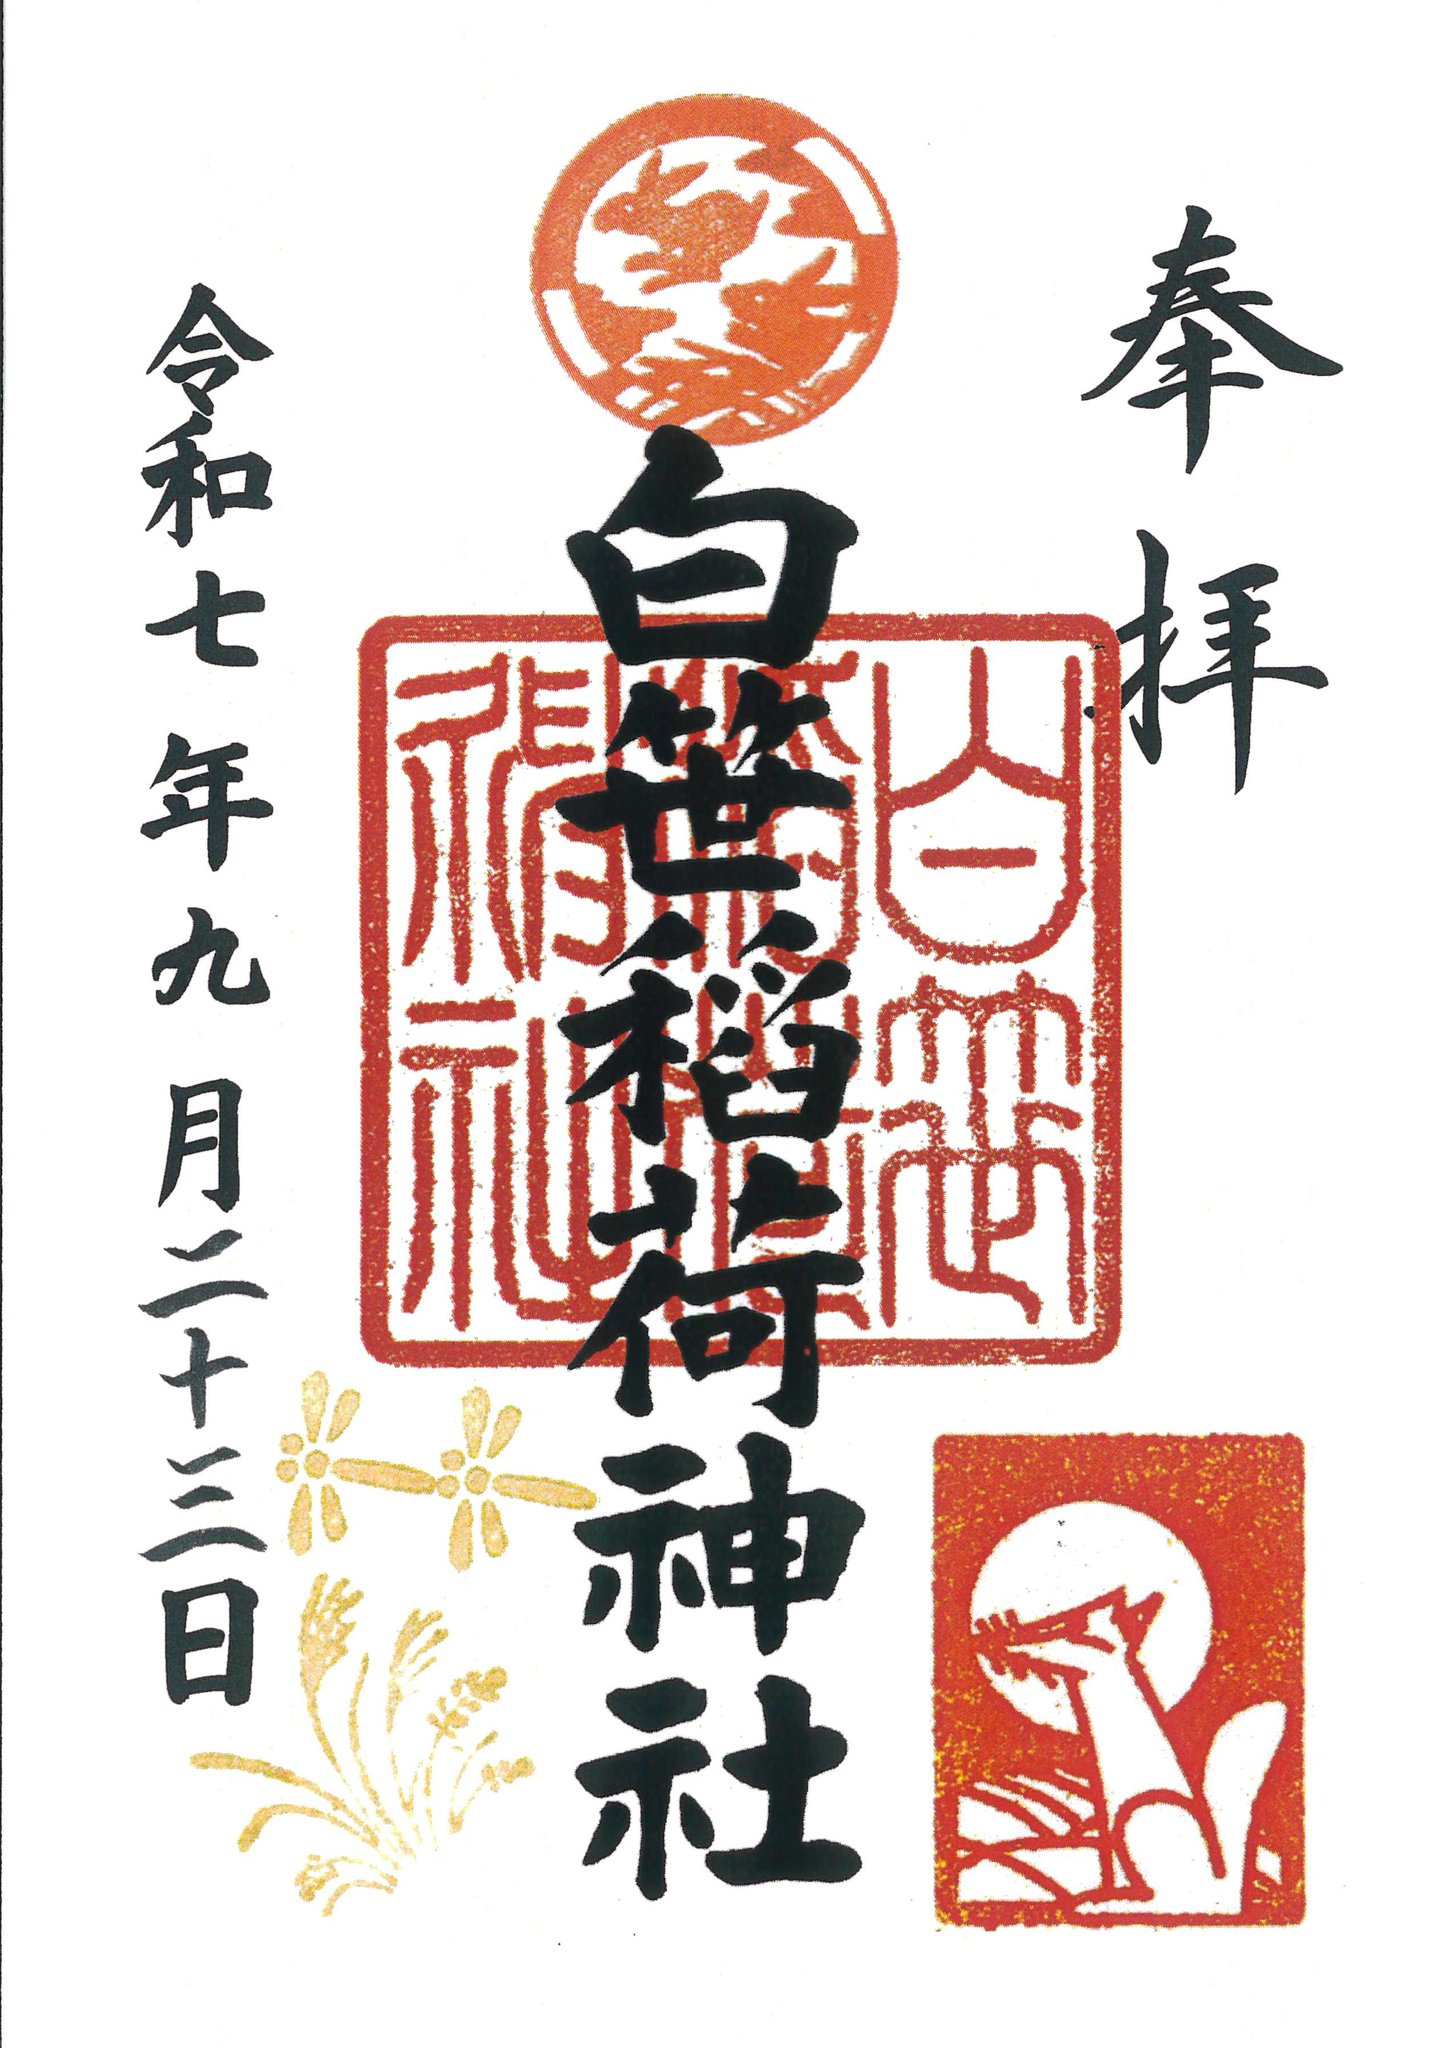 奉拝
白笹稲荷神社
白笹稲荷神社
令和七年九月二十三日